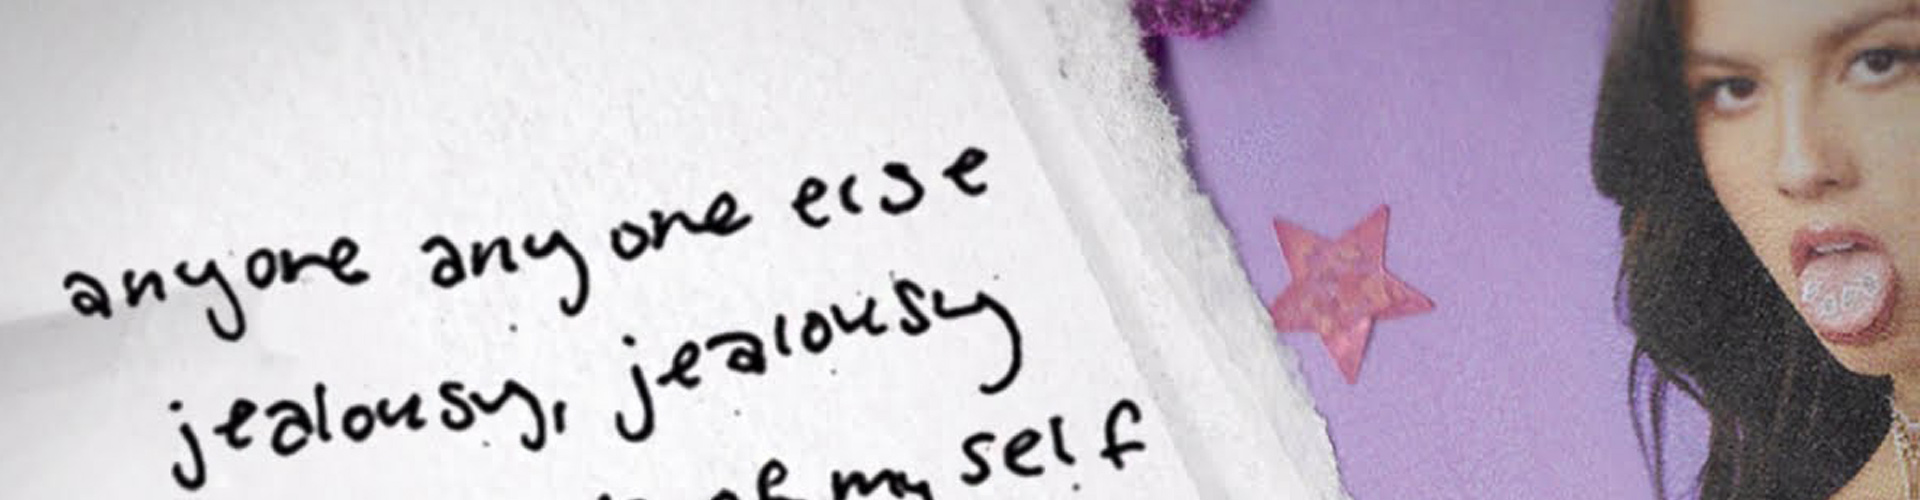 anyone anyone else
jealousy, jealousy
of my self